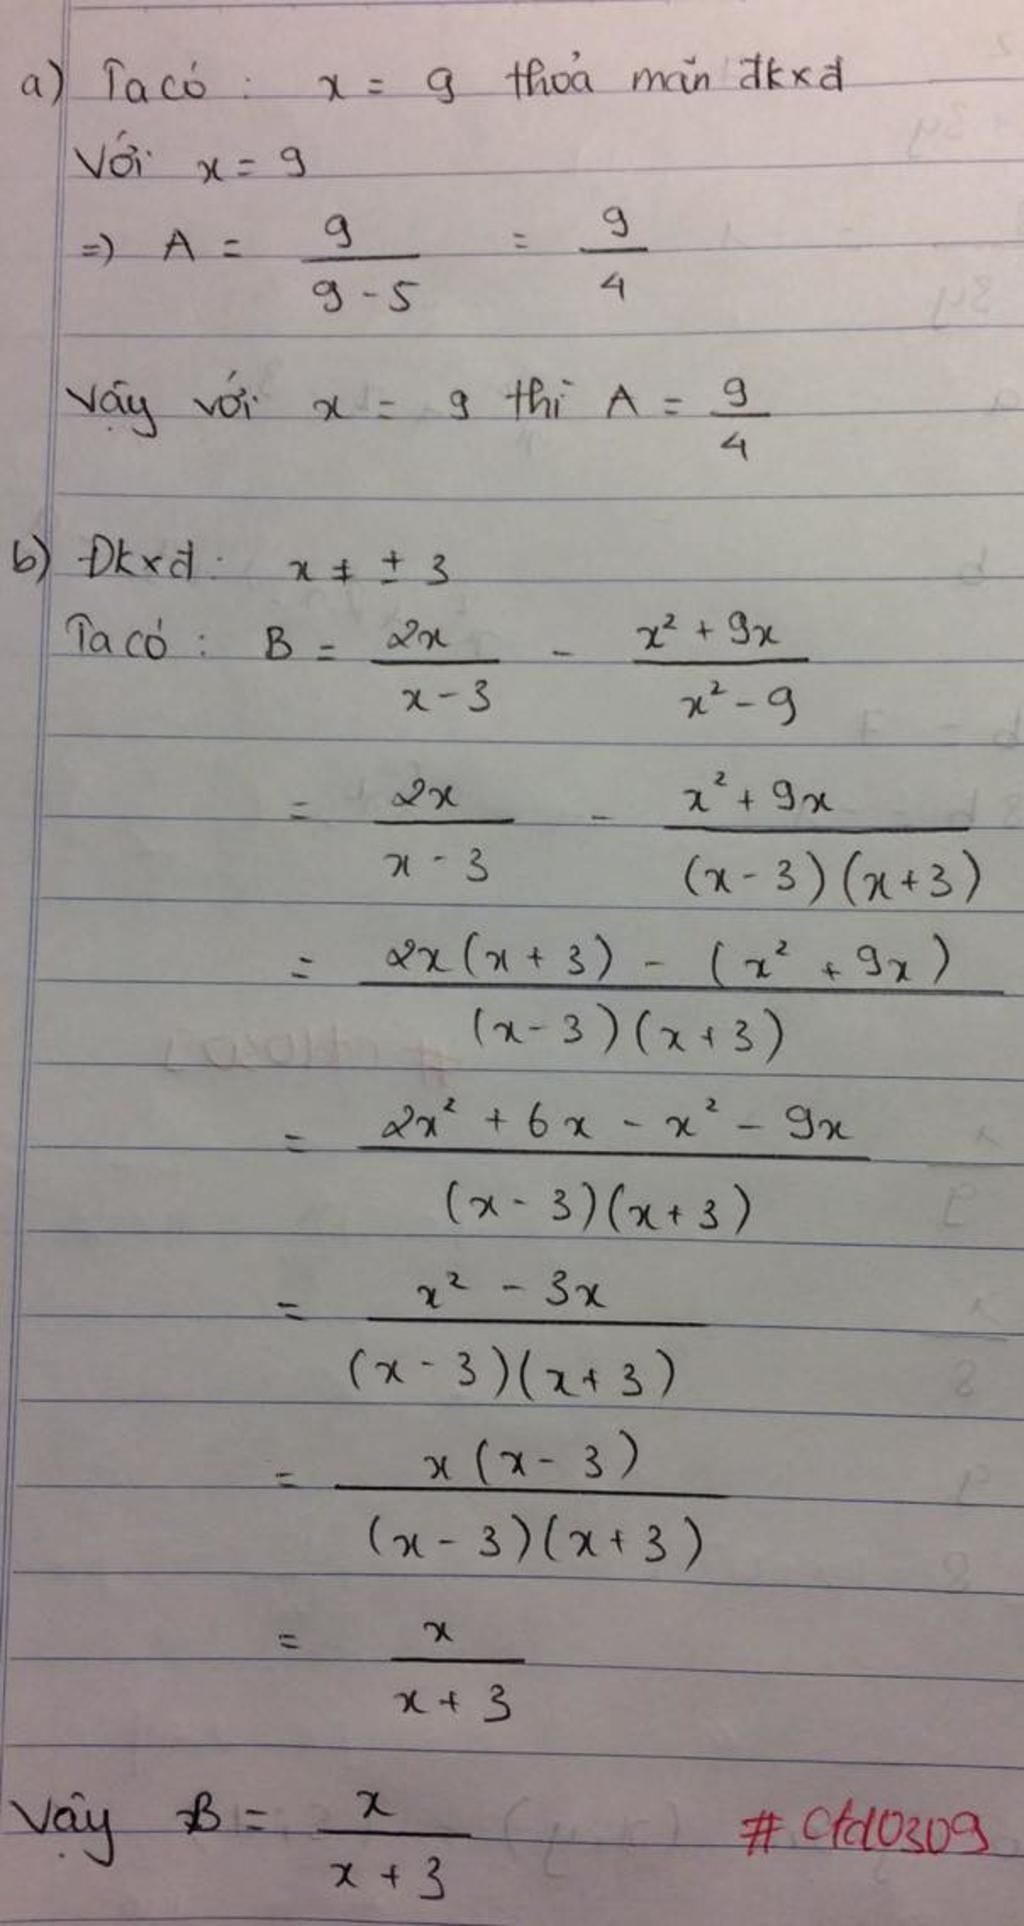 a) Ta có : x = 9 thoả mãn đkxđ
Với x = 9
=> A = 9/(9 - 5) = 9/4
Vậy với x = 9 thì A = 9/4
b) Đkxđ : x ≠ ± 3
Ta có : B = 2x/(x - 3) - (x² + 9x)/(x² - 9)
= 2x/(x - 3) - (x² + 9x)/((x - 3)(x + 3))
= (2x(x + 3) - (x² + 9x))/((x - 3)(x + 3))
= (2x² + 6x - x² - 9x)/((x - 3)(x + 3))
= (x² - 3x)/((x - 3)(x + 3))
= x(x - 3)/((x - 3)(x + 3))
= x/(x + 3)
Vậy B = x/(x + 3) # Ctd0309